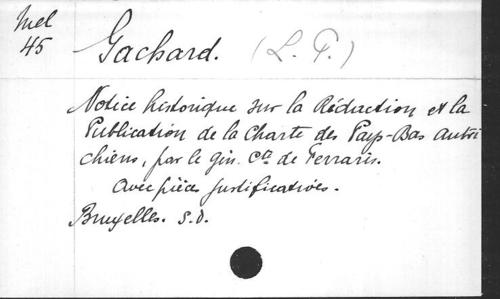 Mel
45
Gachard. (L. P.)
Notice historique sur la Rédaction et la
Publication de la Charte des Pays-Bas Autri
chiens, par le gén. Cte de Ferraris.
Avec pièces justificatives.
Bruxelles. S.D.